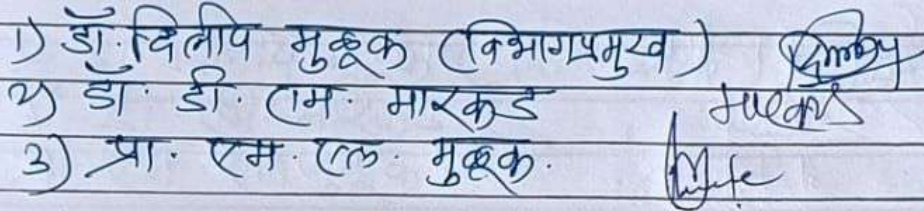 1) डॉ. दिलीप मुळूक (विभागप्रमुख)
२) डॉ. डी. एम. मारकड
३) प्रा. एम. एल. मुळूक.